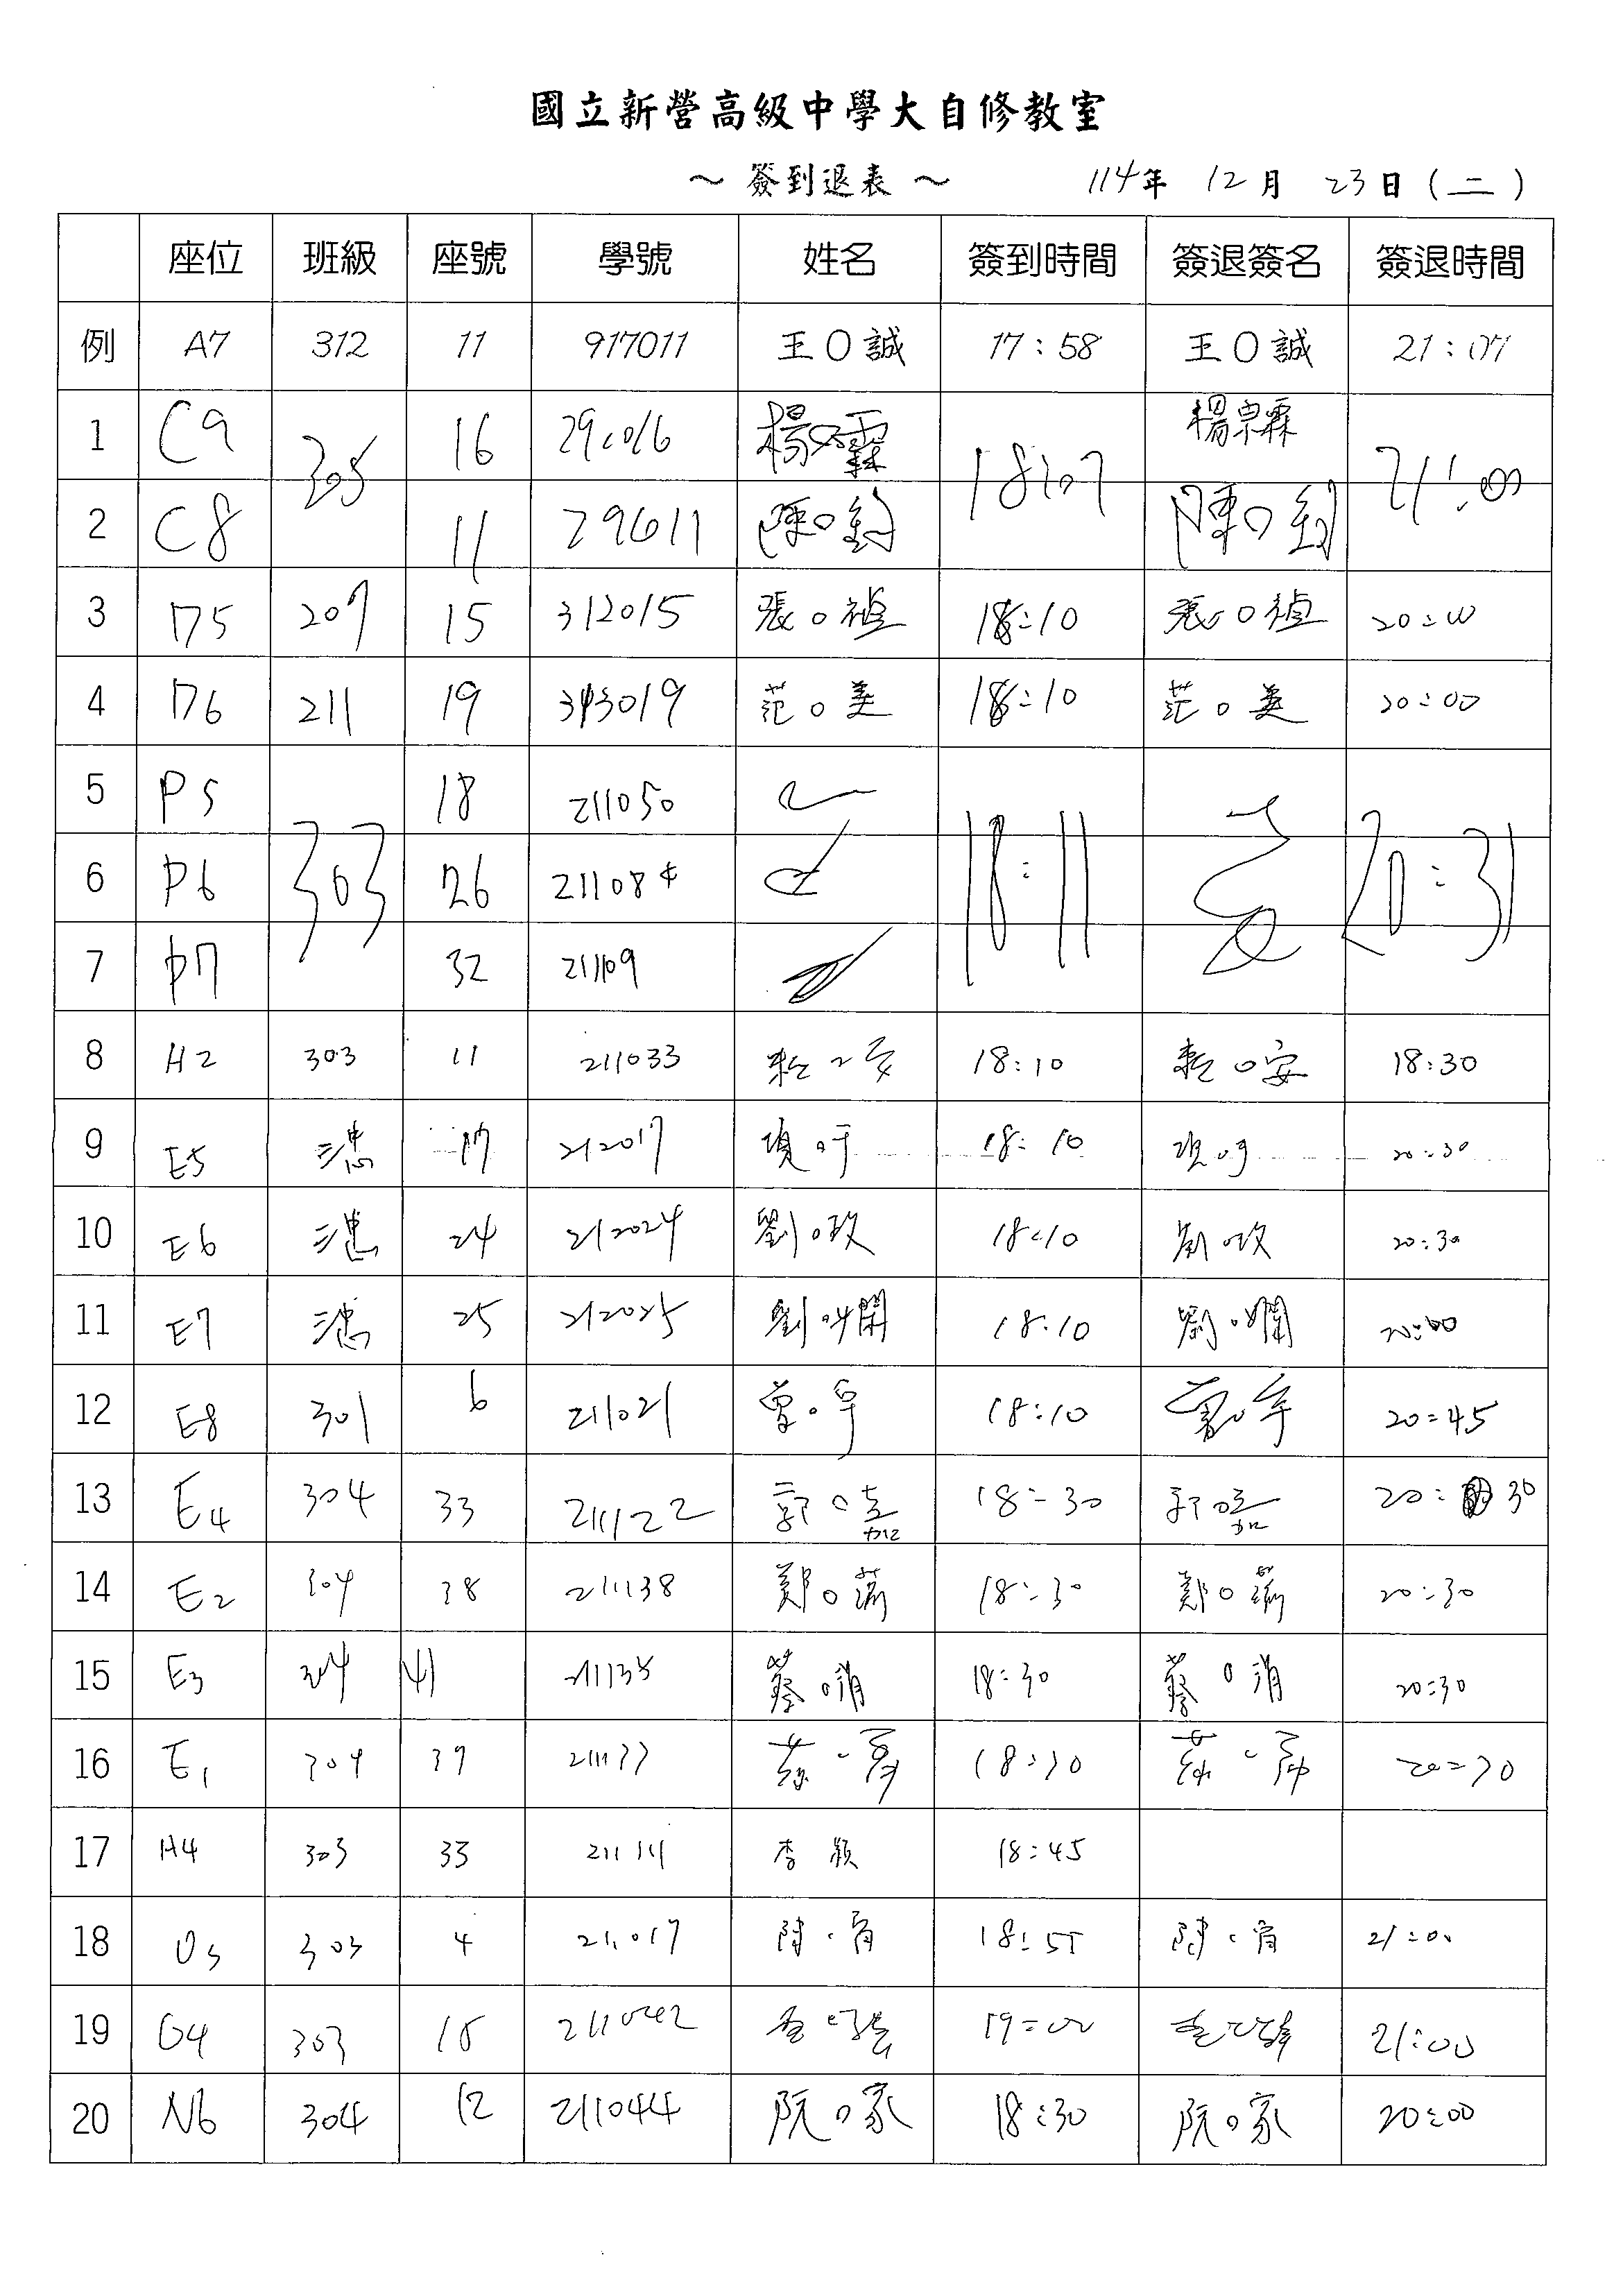 國立新營高級中學大自修教室
～ 簽到退表 ～ 114年 12月 23日 (二)
座位 班級 座號 學號 姓名 簽到時間 簽退簽名 簽退時間
例 A7 312 11 917011 王O誠 17:58 王O誠 21:07
1 C9 305 16 18:07 楊宗霖 21:00
2 C8 11 陳O
3 D5 207 15 312015 張O禎 18:10 張O禎 20:00
4 D6 211 19 313019 范O美 18:10 范O美 20:00
5 P5 303 18 211050 18:11 20:31
6 P6 26 211084
7 P7 32 21109
8 H2 303 11 211033 18:10 賴O安 18:30
9 E5 三忠 17 212017 18:10 20:30
10 E6 三忠 24 212024 劉O玫 18:10 劉O玫 20:30
11 E7 三忠 25 212025 劉O嫻 18:10 劉O嫻 20:00
12 E8 301 6 211021 曾O宇 18:10 20:45
13 E4 304 33 211122 郭O嘉 18:30 郭O嘉 20:30
14 E2 304 38 211138 鄭O蘋 18:30 鄭O蘋 20:30
15 E3 304 41 18:30 蔡O 20:30
16 E1 304 18:30 20:30
17 H4 303 33 211141 李 穎 18:45
18 303 4 211017 陳O宥 18:55 陳O宥 21:00
19 G4 303 211042 19:00 21:00
20 N6 304 12 211044 阮O家 18:30 阮O家 20:00